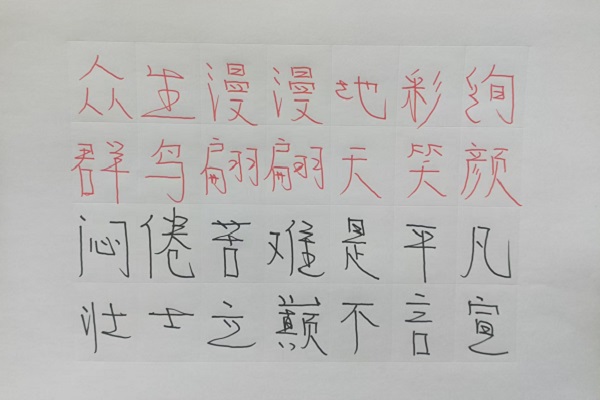 众生漫漫地彩绚
群鸟翩翩天笑颜
闷倦苦难是平凡
壮士立巅不言宣